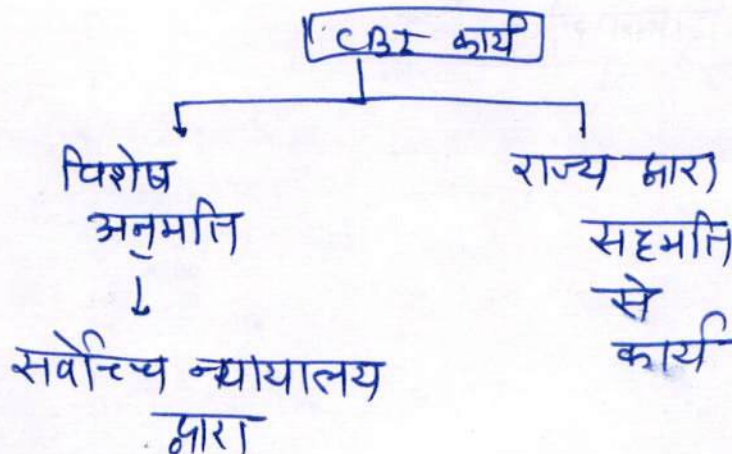 CBI कार्य
विशेष
अनुमति
सर्वोच्च न्यायालय
द्वारा
राज्य द्वारा
सहमति
से
कार्य